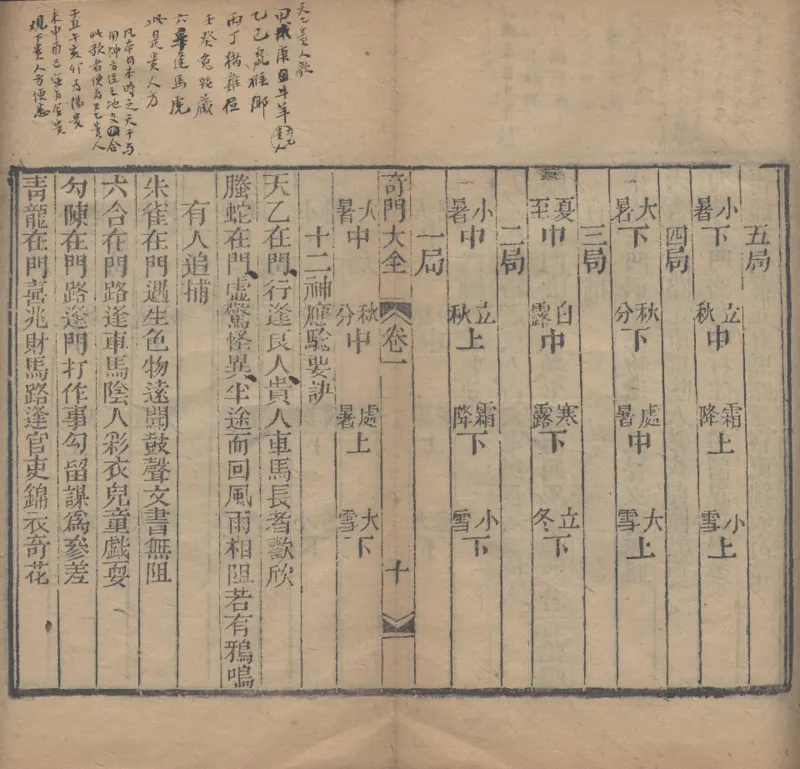 五局
小暑下 立秋中 霜降上 小雪上
四局
大暑下 秋分下 處暑中 大雪上
三局
夏至中 白露中 寒露下 立冬下
二局
小暑中 立秋上 霜降下 小雪下
一局
奇門大全 卷一 十
大暑中 秋分中 處暑上 大雪下
十二神應驗要訣
天乙在門行逢良人貴人車馬長者歡欣
螣蛇在門虛驚怪異半途而回風雨相阻若有鴉鳴
有人追捕
朱雀在門遇生色物遠聞鼓聲文書無阻
六合在門路逢車馬陰人彩衣兒童戲耍
勾陳在門路逢門打作事勾留謀為參差
青龍在門喜兆財馬路逢官吏錦衣奇花
天乙貴人歌
甲戊庚牛羊
乙己鼠猴鄉
丙丁猪雞位
壬癸兔蛇藏
六辛逢馬虎
此是貴人方
凡本日本時之天干与
用神方位之地支合
此歌者便為天乙貴人
子丑午亥卯為陽貴
未申酉巳為陰貴
觀下貴人方便悉